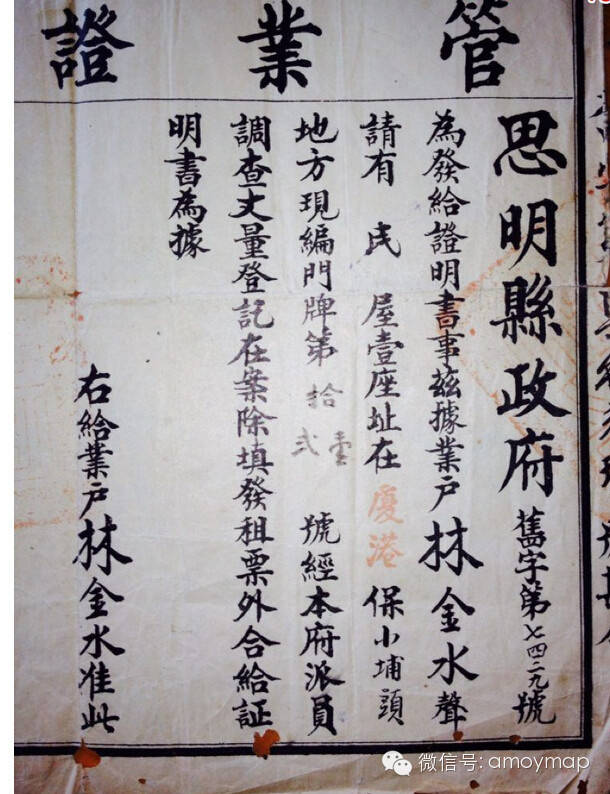 管業證
思明縣政府舊字第七四二九號
為發給證明書事茲據業戶林金水聲
請有民屋壹座址在廈港保小埔頭
地方現編門牌第拾壹弍號經本府派員
調查丈量登記在案除填發租票外合給証
明書為據
右給業戶林金水准此
微信号: amoymap